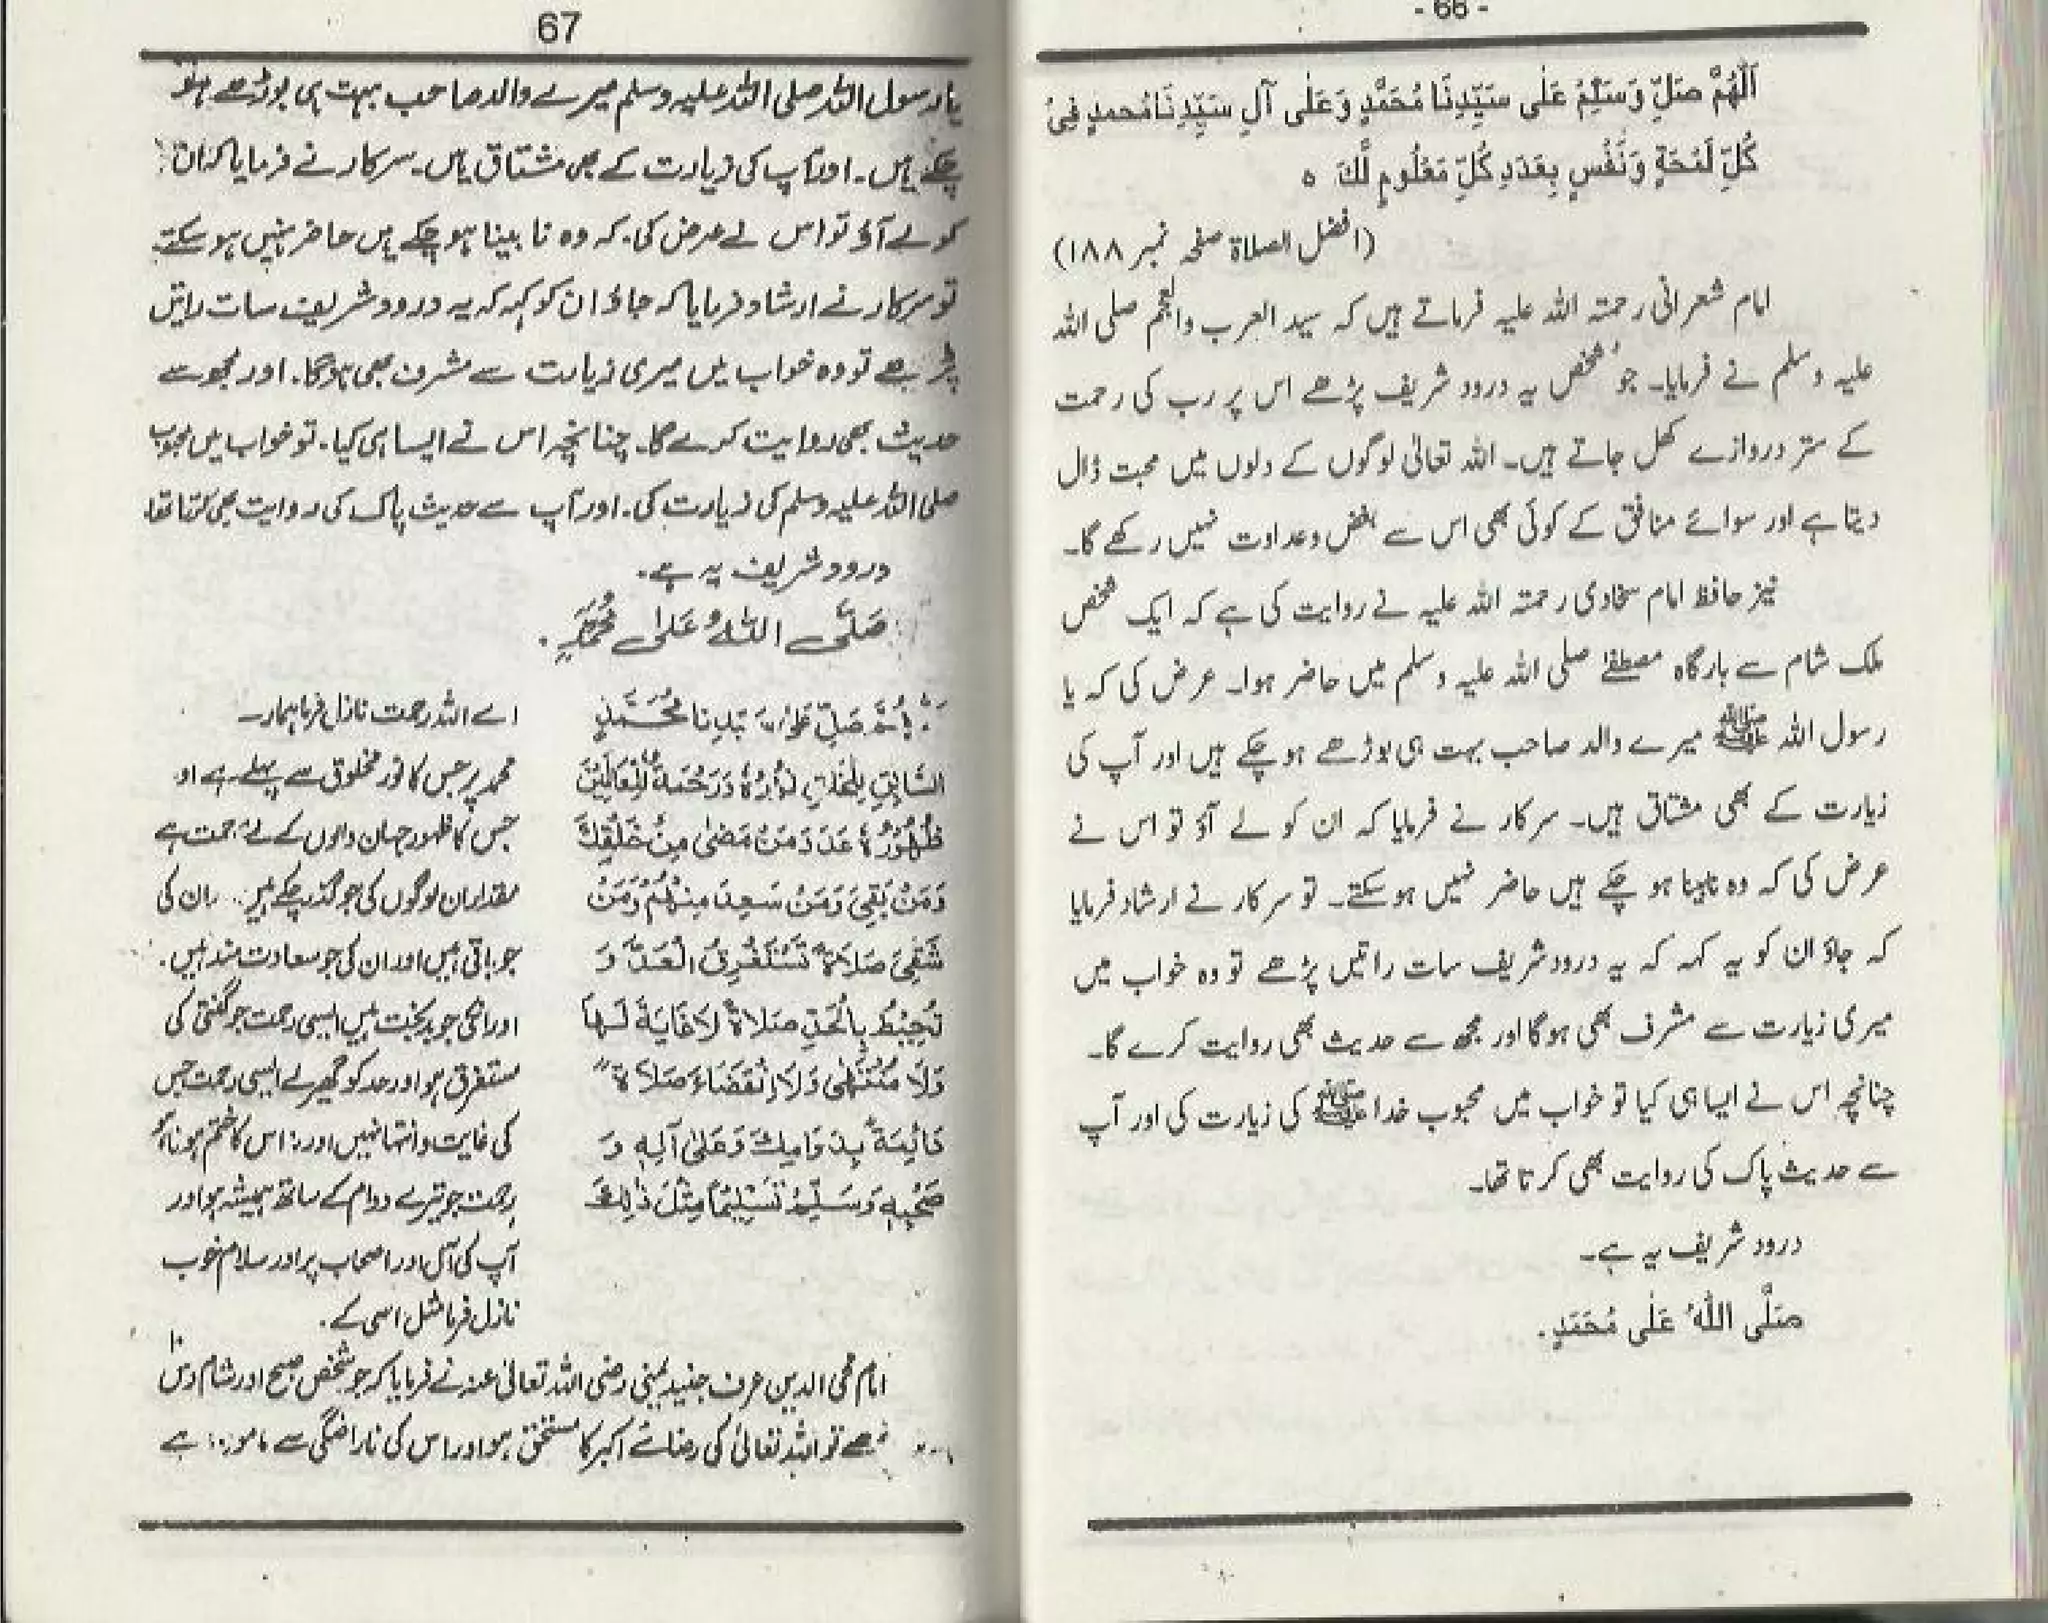 - 66 -
اَللّٰهُمَّ صَلِّ وَسَلِّمْ عَلٰى سَيِّدِنَا مُحَمَّدٍ وَعَلٰى آلِ سَيِّدِنَا مُحمدٍ فِىْ
كُلِّ لَمْحَةٍ وَنَفْسٍ بِعَدَدِ كُلِّ مَعْلُومٍ لَّكَ ه
(افضل الصلاۃ صفحہ نمبر ۱۸۸)
امام شعرانی رحمتہ اللہ علیہ فرماتے ہیں کہ سید العرب والعجم صلی اللہ
علیہ وسلم نے فرمایا۔ جو شخص یہ درود شریف پڑھے اس پر رب کی رحمت
کے ستر دروازے کھل جاتے ہیں۔ اللہ تعالیٰ لوگوں کے دلوں میں محبت ڈال
دیتا ہے اور سوائے منافق کے کوئی بھی اس سے بغض وعداوت نہیں رکھے گا۔
نیز حافظ امام سخاوی رحمتہ اللہ علیہ نے روایت کی ہے کہ ایک شخص
ملک شام سے بارگاہ مصطفےٰ صلی اللہ علیہ وسلم میں حاضر ہوا۔ عرض کی کہ یا
رسول اللہ ﷺ میرے والد صاحب بہت ہی بوڑھے ہو چکے ہیں اور آپ کی
زیارت کے بھی مشتاق ہیں۔ سرکار نے فرمایا کہ ان کو لے آؤ تو اس نے
عرض کی کہ وہ نابینا ہو چکے ہیں حاضر نہیں ہوسکتے۔ تو سرکار نے ارشاد فرمایا
کہ جاؤ ان کو یہ کہہ کہ یہ درود شریف سات راتیں پڑھے تو وہ خواب میں
میری زیارت سے مشرف بھی ہوگا اور مجھ سے حدیث بھی روایت کرے گا۔
چنانچہ اس نے ایسا ہی کیا تو خواب میں محبوب خدا ﷺ کی زیارت کی اور آپ
سے حدیث پاک کی روایت بھی کرتا تھا۔
درود شریف یہ ہے۔
صَلَّى اللّٰهُ عَلٰى مُحَمَّدٍ.
67
یا رسول اللہ صلی اللہ علیہ وسلم میرے والد صاحب بہت ہی بوڑھے ہو
چکے ہیں۔ اور آپ کی زیارت کے بھی مشتاق ہیں۔ سرکار نے فرمایا کہ ان
کو لے آؤ تو اس نے عرض کی۔ کہ وہ نابینا ہو چکے ہیں حاضر نہیں ہو سکتے
تو سرکار نے ارشاد فرمایا کہ جاؤ ان کو کہہ کہ یہ درود شریف سات راتیں
پڑھے تو وہ خواب میں میری زیارت سے مشرف بھی ہوگا۔ اور مجھ سے
حدیث بھی روایت کرے گا۔ چنانچہ اس نے ایسا ہی کیا۔ تو خواب میں محبوب
صلی اللہ علیہ وسلم کی زیارت کی۔ اور آپ سے حدیث پاک کی روایت بھی کرتا تھا
درود شریف یہ ہے۔
صَلَّى اللّٰهُ عَلٰى مُحَمَّدٍ.
صَلِّ عَلٰى سَيِّدِنَا مُحَمَّدٍ
السَّابِقِ لِلْخَلْقِ نُوْرُهٗ وَرَحْمَةٌ لِّلْعَالَمِيْنَ
ظُهُوْرُهٗ عَدَدَ مَنْ مَضٰى مِنْ خَلْقِكَ
وَمَنْ بَقِىَ وَمَنْ سَعِدَ مِنْهُمْ وَمَنْ
شَقِىَ صَلَاةً تَسْتَغْرِقُ الْعَدَّ وَ
تُحِيْطُ بِالْحَدِّ صَلَاةً لَا غَايَةَ لَهَا
وَلَا مُنْتَهٰى وَلَا انْقَضَاءَ صَلَاةً
دَائِمَةً بِدَوَامِكَ وَعَلٰى آلِهٖ وَ
صَحْبِهٖ وَسَلِّمْ تَسْلِيْمًا مِثْلَ ذٰلِكَ
اے اللہ رحمت نازل فرما ہمارے
محمد پر جس کا نور مخلوق سے پہلے ہے اور
جس کا ظہور جہان والوں کے لئے رحمت ہے
مقدار ان لوگوں کی جو گذر چکے ہیں ان کی
جو باقی ہیں اور ان کی جو سعادت مند ہیں۔
اور انکی جو بدبخت ہیں ایسی رحمت جو گنتی کی
مستغرق ہو اور حد کو گھیرلے ایسی رحمت جس
کی غایت وانتہا نہیں اور نہ اس کا ختم ہونا،
رحمت جو تیرے دوام کے ساتھ ہمیشہ ہو اور
آپ کی آل اور اصحاب پر اور سلام خوب
نازل فرما مثل اسی کے۔
امام محی الدین عرف جنید یمنی رضی اللہ تعالیٰ عنہ نے فرمایا کہ جو شخص صبح اور شام دس ۱۰
تو اللہ تعالیٰ کی رضائے اکبر کا مستحق ہو اور اس کی ناراضگی سے ہے